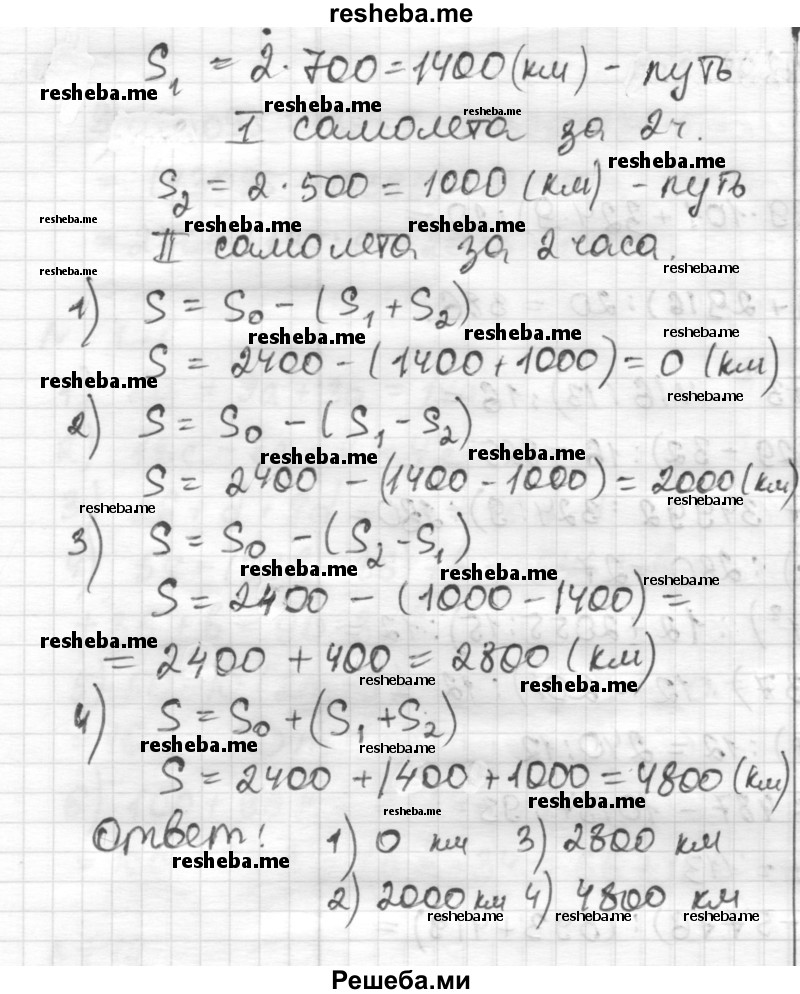 resheba.me
S₁ = 2·700=1400(км) - путь
resheba.me resheba.me resheba.me
I самолета за 2ч.
resheba.me
S₂ = 2·500=1000(км) - путь
resheba.me resheba.me resheba.me
II самолета за 2 часа.
resheba.me resheba.me
1) S = S₀ - (S₁+S₂)
resheba.me resheba.me resheba.me
S = 2400 - (1400+1000)= 0 (км)
resheba.me resheba.me
2) S = S₀ - (S₁-S₂)
resheba.me resheba.me
S = 2400 - (1400-1000)= 2000(км)
resheba.me resheba.me
3) S = S₀ - (S₂-S₁)
resheba.me resheba.me resheba.me
S = 2400 - (1000-1400) =
resheba.me
= 2400 + 400 = 2800 (км)
resheba.me resheba.me
4) S=S₀+(S₁+S₂)
resheba.me resheba.me
S = 2400 +1400+1000=4800(км)
resheba.me resheba.me
Ответ: 1) 0 км 3) 2800 км
resheba.me
2) 2000км 4) 4800 км
resheba.me resheba.me resheba.me
Решеба.ми